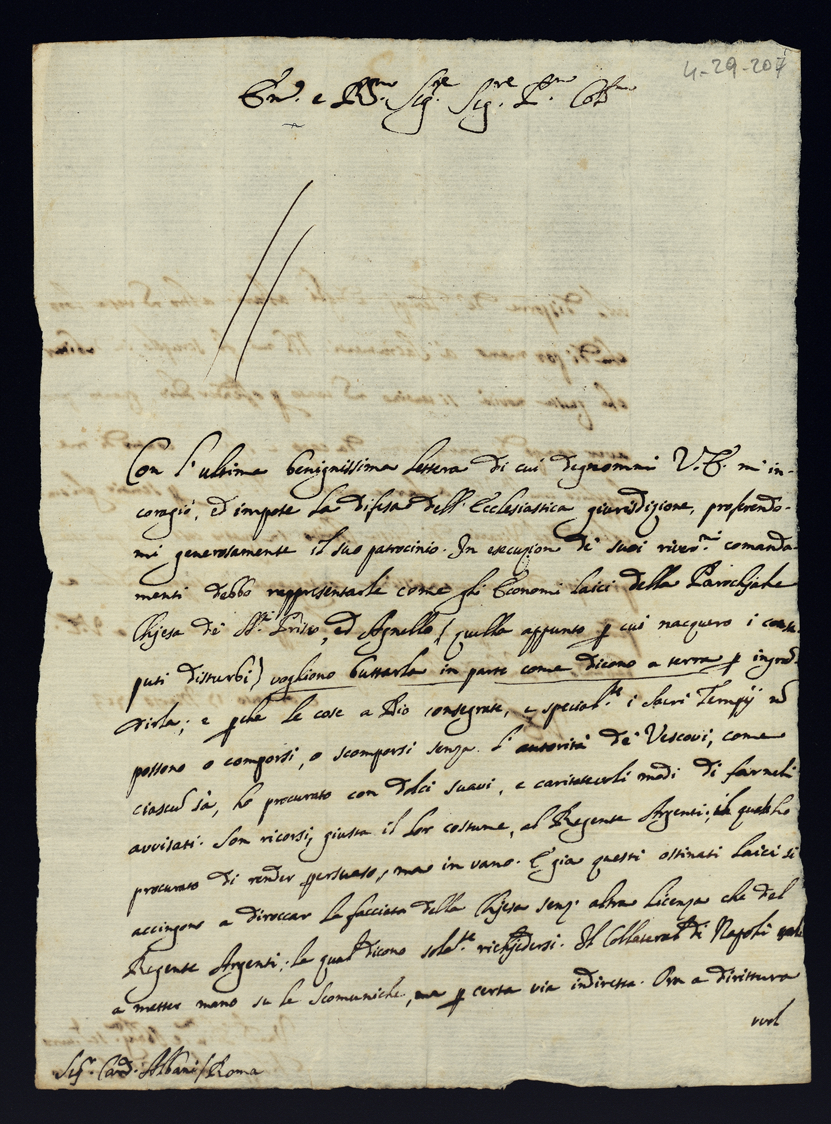 4-29-207
Em.o e R.mo Sig.re Sig.re P.ne Col.mo
Con l'ultima benignissima lettera di cui degnommi V. E. mi in-
coragiò, ed impose la difesa dell'Ecclesiastica giurisdizione, proferendo-
mi generosamente il suo patrocinio. In esecuzion de' suoi river.mi comanda-
menti debbo rappresentarle come gli Economi laici della Parochjale
Chjesa dei SS.ti Prisco, ed Agnello (quella appunto p cui nacquero i
puti disturbi) vogliono buttarla in parte come dicono a terra p ingran-
dirla; e pche le cose a Dio consegrate, e special.te i Sacri Tempij nō
possono o comporsi, o scomporsi senza l'autorità de' Vescovi, come
ciascū sà, ho procurato con dolci suavi, e caritatevoli modi di farneli
avvisati. Son ricorsi, giusta il lor costume, al Regente Argenti; il quale ho
procurato di render persuaso, ma in vano. E già questi ostinati Laici si
accingono a diroccar la facciata della Chjesa senz' altra licenza che del
Regente Argenti; la qual dicono sola.te richjedersi. Il Collateral di Napoli
a metter mano su le Scomuniche, ma p certa via indiretta. Ora a dirittura
vuol
Sig.r Card. Albani / Roma